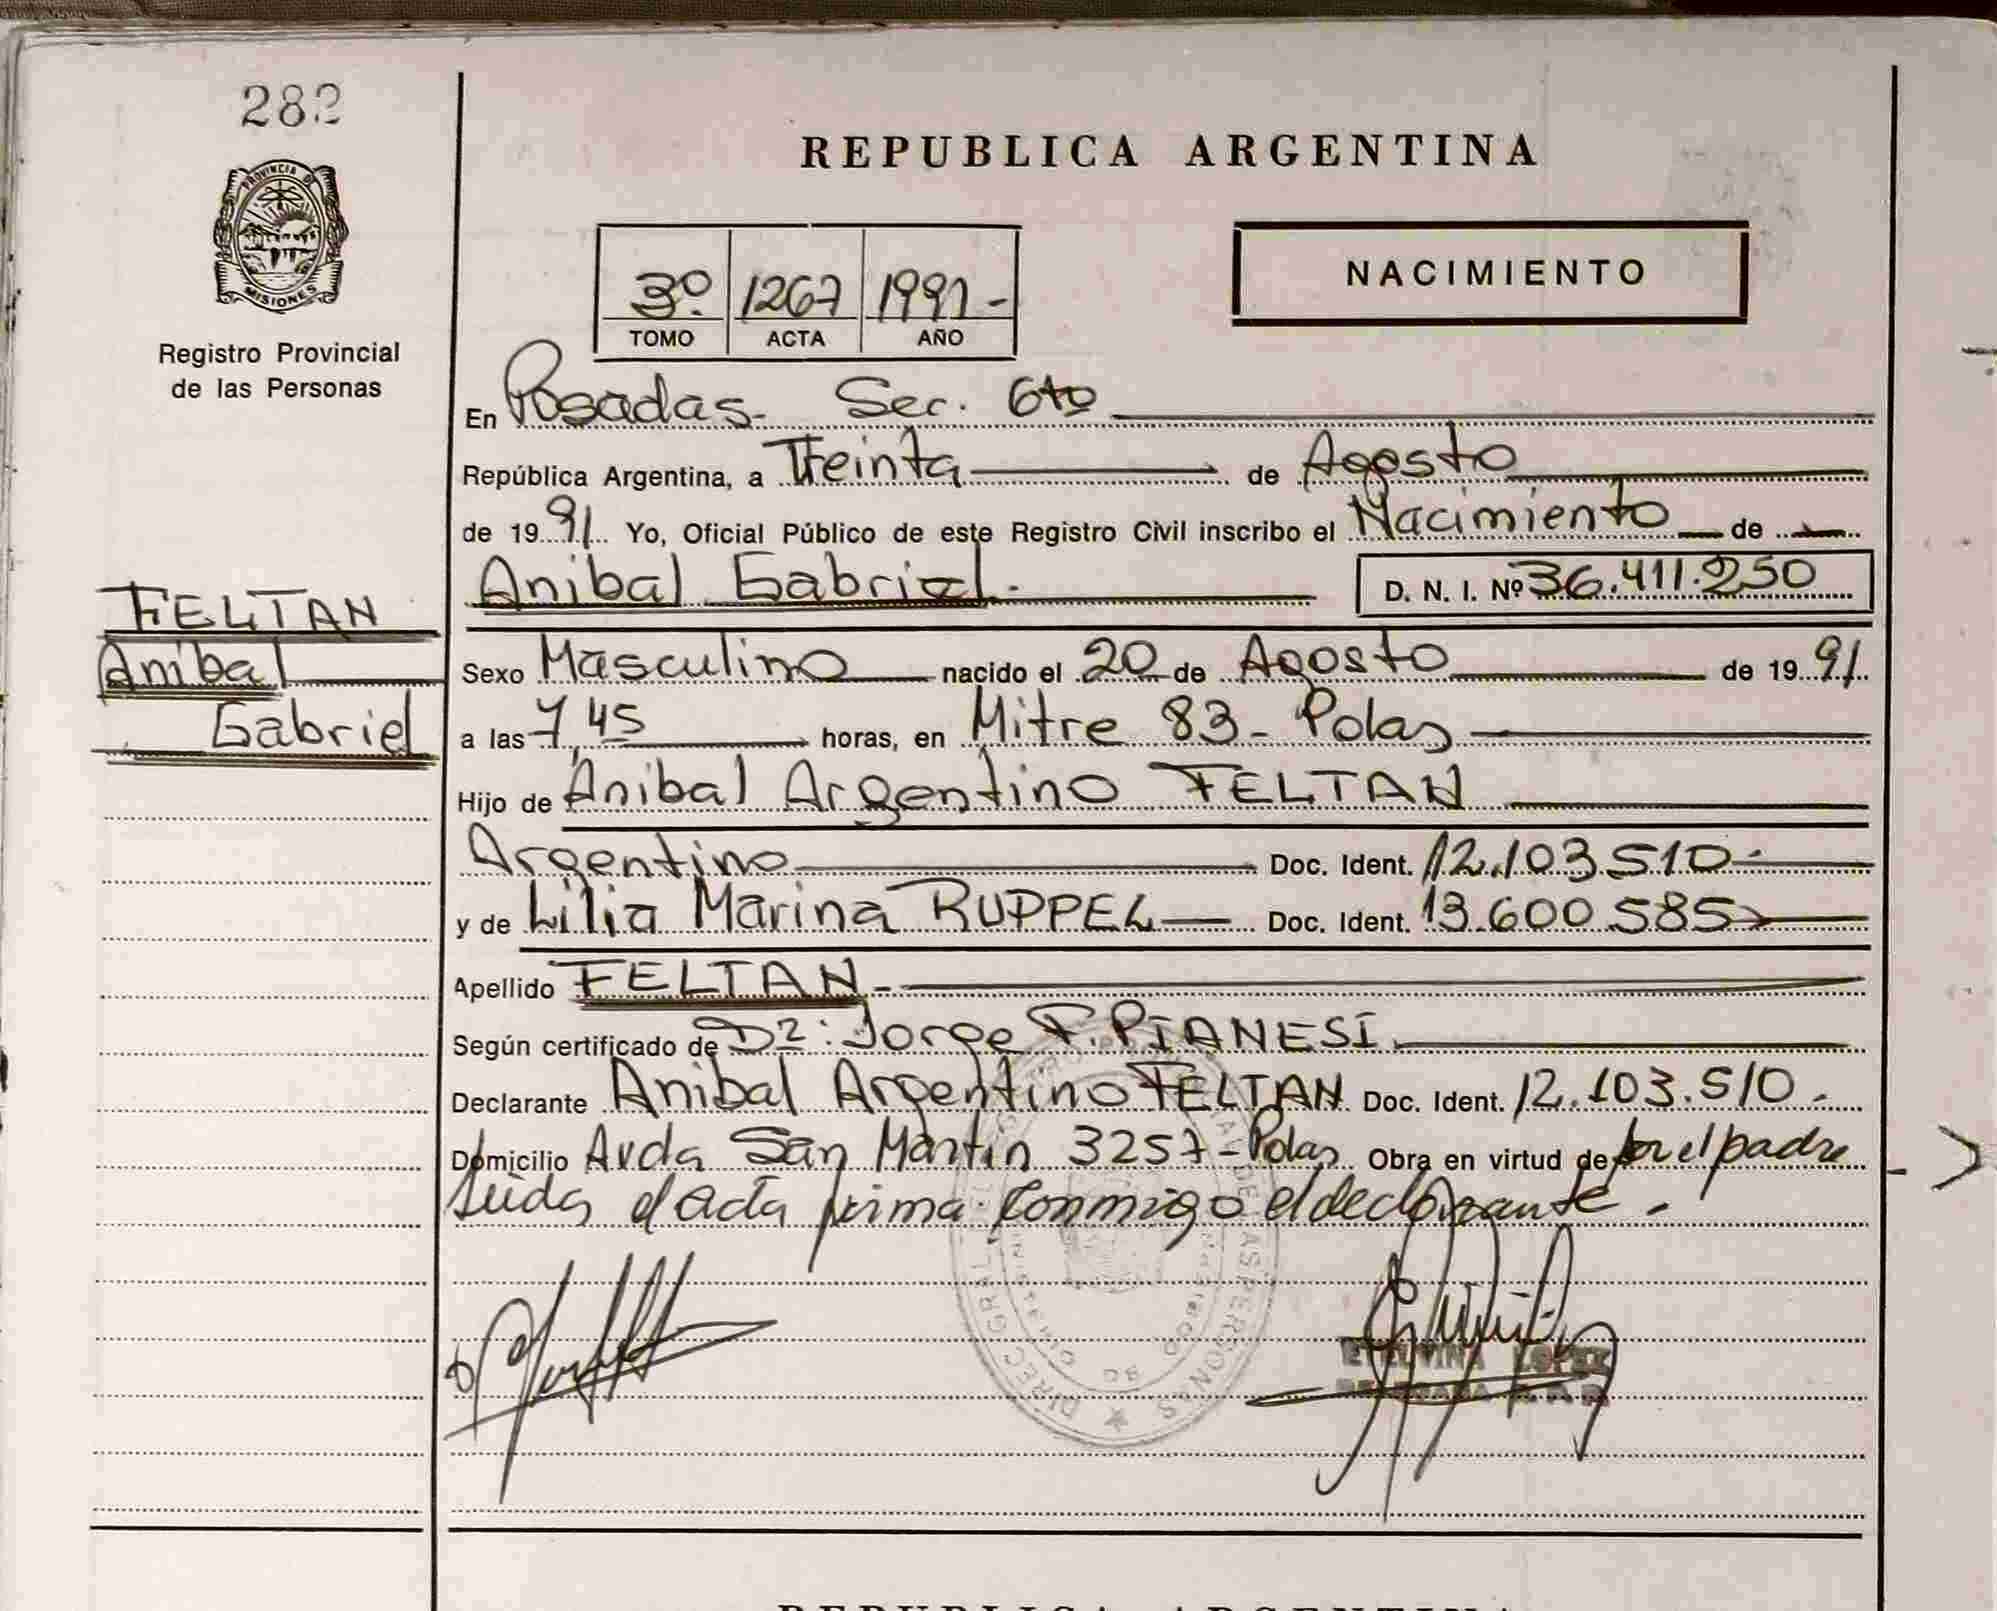 282
PROVINCIA DE
MISIONES
Registro Provincial
de las Personas
FELTAN
Anibal
Gabriel
REPUBLICA ARGENTINA
3º 1267 1991-
TOMO ACTA AÑO
NACIMIENTO
En Posadas- Sec. 6to
República Argentina, a Treinta de Agosto
de 1991 Yo, Oficial Público de este Registro Civil inscribo el Nacimiento de
Anibal Gabriel.- D. N. I. Nº 36.411.250
Sexo Masculino nacido el 20 de Agosto de 1991
a las 7,45 horas, en Mitre 83- Pdas
Hijo de Anibal Argentino FELTAN
Argentino Doc. Ident. 12.103.510-
y de Lilia Marina RUPPEL Doc. Ident. 13.600.585
Apellido FELTAN-
Según certificado de Dr: Jorge F. PIANESI.
Declarante Anibal Argentino FELTAN Doc. Ident. 12.103.510.-
Domicilio Avda San Martin 3257-Pdas Obra en virtud de por el padre
Leida el acta firma conmigo el declarante.-
ETELVINA LOPEZ
REPUBLICA ARGENTINA